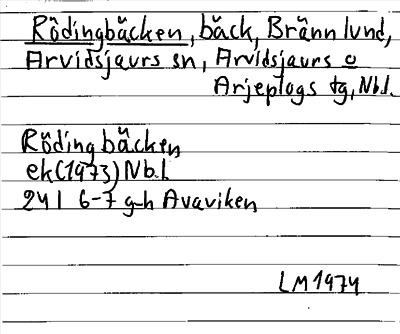 Rödingbäcken, bäck, Brännlund,
Arvidsjaurs sn, Arvidsjaurs o
Arjeplogs tg, Nbl.
Rödingbäcken
ek(1973) Nb.l.
24I 6-7 g-h Avaviken
LM 1974